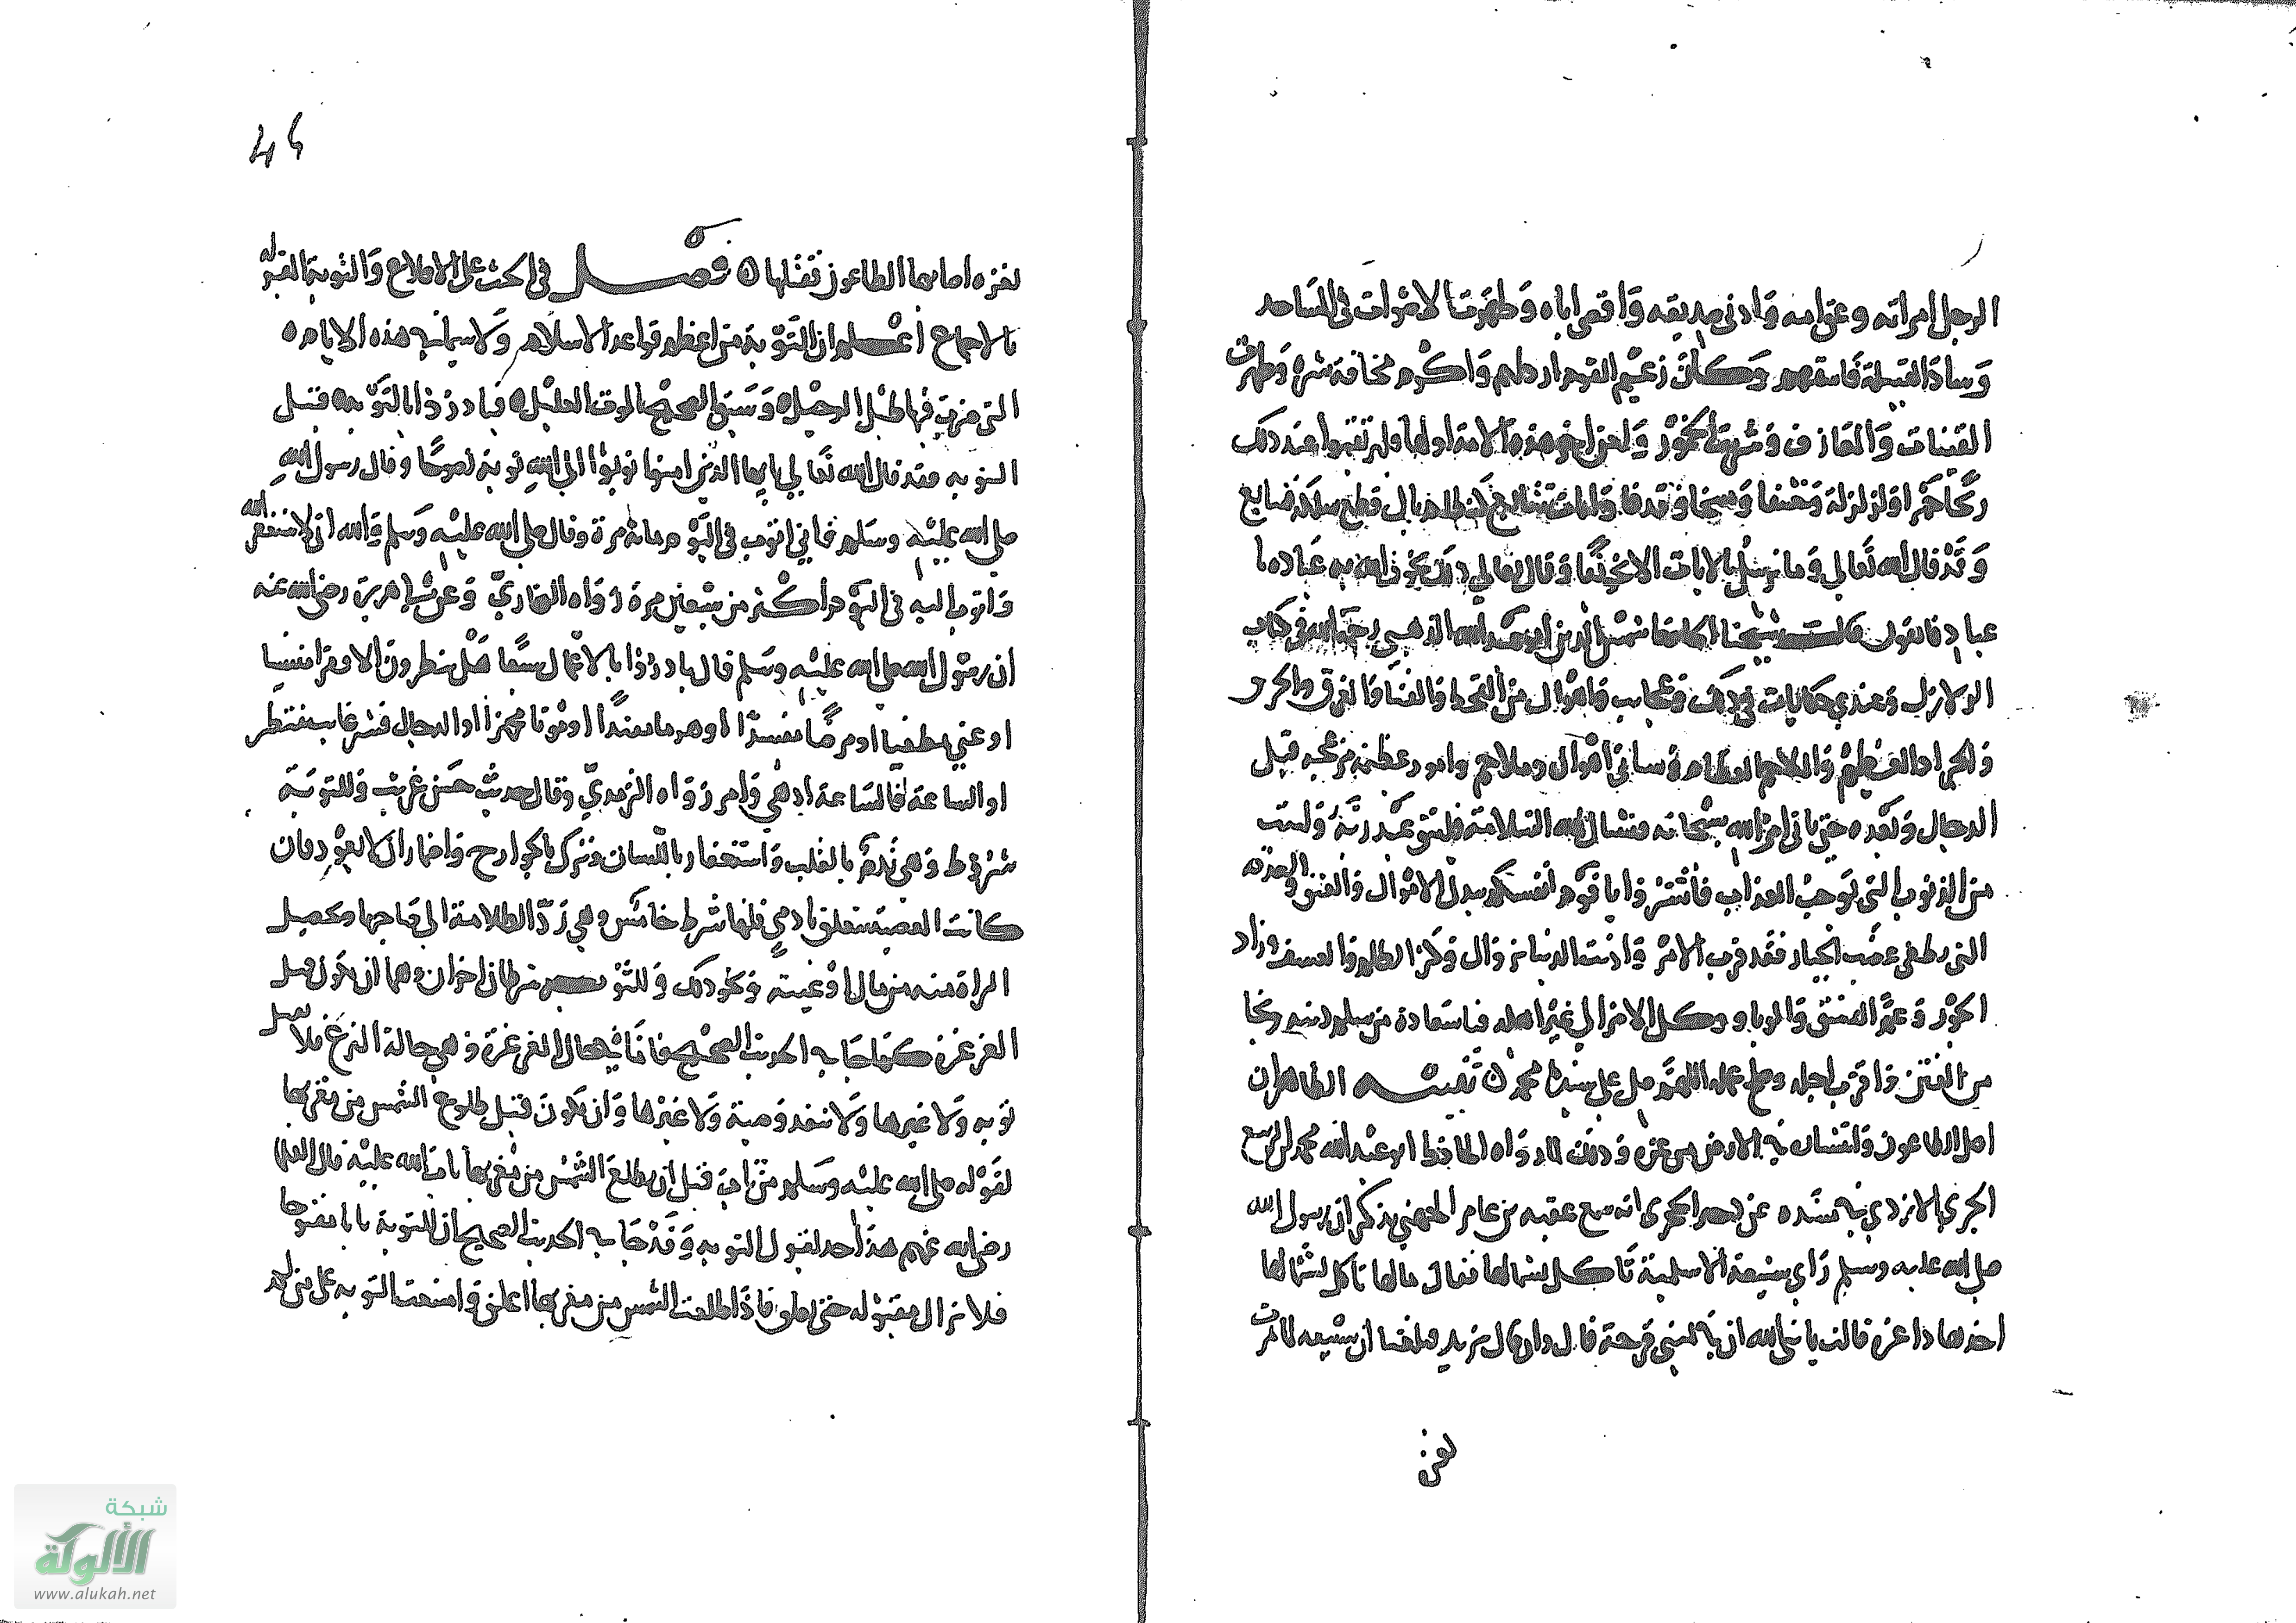 الرجل امراته وعق امه وَادنى صديقه وَاقصى اباه وَظهرَت الاصْوات في المسَاجد
وَسادَ القبيلة فَاسقهم وَكان زعيْم القوم ارذلهم وَاكْرم مخافة شره وَظهرت
القينات وَالمعَازف وَشربت الخمُور وَلعن اخر هذه الامة اولها فليرتقبوا عند ذلك
ريحًا حَمرا وَزلزلة وَخسْفا وَمسخا وَقذفا وَايات تتَابع كنظام بال قطع سلكه فتتابع
وَقدْ قال الله تعَالي وَما نرسل بالايات الا تخويفًا وَقال تعالي ذلك يخوف الله به عبَاده يا
عباد فاتقون قلت شيخنا الحافظ شمسُ الدين ابو عبد الله الذهبي رحمه الله في كتاب
الزلازل وَعندي حكايات في ذلك وَعجايب وَاهْوال من القحط وَالفنا وَالغرق والحر
وَالجراد العَظيم وَالملاحم العظام وَسياتي اهْوال وملاحم وامور عظيمة مزعجه قبل
الدجال وَبعده حتى ياتي امرُ الله سبْحانه فنسَال الله السَلامة فليتق عَبد ربَّه وَليتب
من الذنوب التى توجبُ العذاب فأشترُوا يا قوْم أنفسكم ببذل الامْوال وَالعتق وَالصدقه
التى تطفى غضب الجبار فقد قرب الامْر وَاذنت الدنيا بزوَال وَكثر الظلم وَالعسف وزاد
الجوْر وَعمَّ الفسق وَالربا ووكل الامر الي غيْر اهله فيا سَعادة من سلم دينه ونجا
من الفتن وَاقترب اجله وصلح عمله اللهمَّ صل على سيدنا محمد تَنبيه الظاهر ان
اصل الطاعون وَانتشاره في الارض من غزة وَدليل ذلك ما رواه الحافظ ابو عبْد الله محمد بن الربيع
الجيزي الازدي في مسنَده عن دخين الحجري انه سمع عقبه بن عامر الجهني يذكر ان رسول الله
صلى الله عليه وسلم رَاى سبيعة الاسلمية تَاكل بشمالها فقال مالها تاكل بشمالها
اخذها داء غزة فقالت يا نبى الله ان في يميني قرحة قال وان قال يزيد فبلغنا ان سبيعه لما مرت
بغزه
بغزه اصابها الطاعون فقتلها فصل في الحث على الاقلاع وَالتوبة المقبوله
بالاجماع أعلم ان التَّوبة من اعظم قواعد الاسلام وَلا سيما في هذه الايام
التى ضربَ فيها طبْل الرحيْل وَسَبق الصحيْح بالموت العليْل فبادرُوا بالتوّبه قبل
التوبه فقد قال الله تعَالي يا ايها الذين امنوا توبوا الى اللهِ توبة نصوحًا وقال رسول اللهِ
صلى الله عليْه وسَلم فاني اتوب في اليوْم مائة مرة وقال صلى الله عليْه وَسلم وَالله انى لاستغفر الله
وَاتوب اليه في اليوْم أكثر من سبْعين مرة رَوَاه البخاريّ وَعن ابي هريرة رضى الله عنه
ان رسوْل الله صلى الله عليْه وسَلم قال بادرُوا بالاعْمال سبعًا هَل تنظرون الا فقرا منسيا
او غنى مطغيا او مرضًا مفسدًا او هرما مفندًا او مْوتا مجهزا او الدجال فشر غايب ينتظر
او الساعة فالسَاعة ادهى وَامر رَوَاه الترمذيّ وقال حديثٌ حَسن غريب وَللتوبَة
شرُوط وَهى ندَمٌ بالقلب وَاستغفار باللسان وَترْك بالجوارح وَاضمار ان لا يعوْد فان
كانت المعصية تتعلق بادمي فلها شرط خامسٌ وهي رَدّ الظلامة الى صَاحبها وتحصيل
البراة منه من مال أوْ غيبة وَنحو ذلك وَللتوْبه شرطان اخران وهما ان تكون قبل
الغرغرة كما جَا في الحديث الصحيْح فاما في حال الغرغرة وَهى حالة النزع فلا تقبل
توبه وَلا غيرها وَلا تنفد وَصية وَلا غيرْها وَان تكونَ قبل طلوع الشمس من مغربها
لقوله صلى الله عليْه وسَلم من تابَ قبل أن تطلعَ الشمْس من مغربها تابَ الله عليْه قال العلما
رضى الله عنهم هذا حد لقبول التوبه وَقدْ جَا في الحديث الصحيح ان للتوبة بابا مفتوحا
فلا تزال مقبوْله حتى يغلق فاذَا طلعت الشمس من مغربها اغلق وَامتنعت التوبه على من لم
شبكة
الألوكة
www.alukah.net